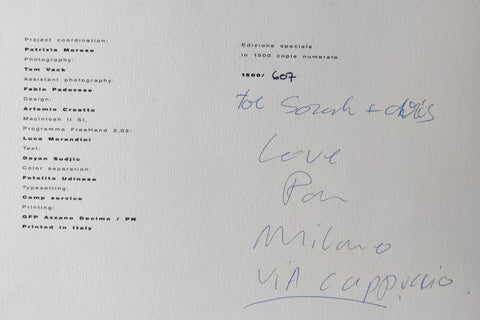 Project coordination:
Patrizia Moroso
Photography:
Tom Vack
Assistant photography:
Fabio Padovese
Design:
Artemio Croatto
Macintosh II SI,
Programma FreeHand 2.02:
Luca Morandini
Text:
Deyan Sudjic
Color separation:
Fotolito Udinese
Typesetting:
Comp service
Printing:
GFP Azzano Decimo / PN
Printed in Italy
Edizione speciale
in 1500 copie numerate
1500/ 607
Sarah +
Love
Milano
VIA Cappuccio